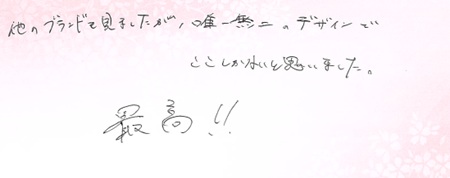 他のブランドも見ましたが、唯一無二のデザインで
ここしかないと思いました。
最高!!